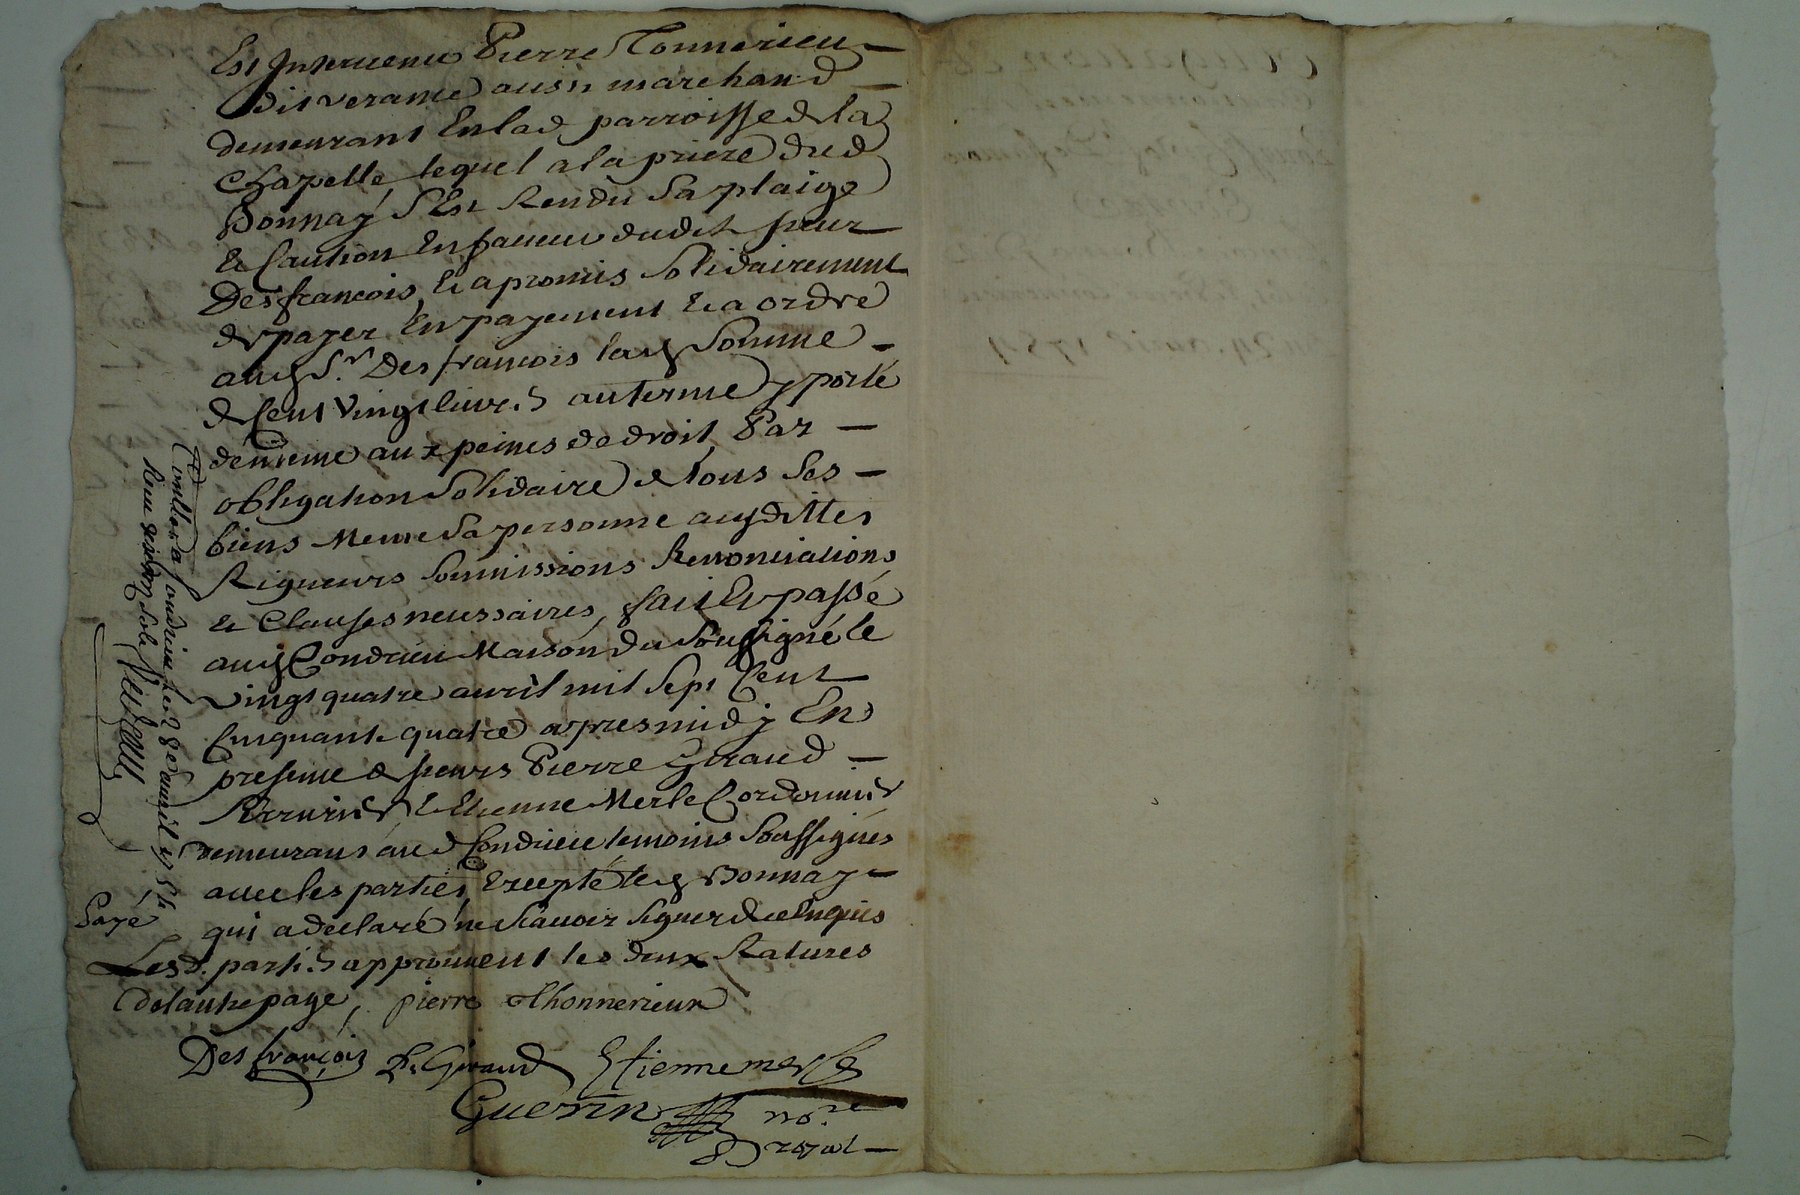 Est Intervenu Pierre Tonnerieu
dit verance aussi marchand
demeurant En lad parroisse de la
Chapelle, lequel a la priere dud
Bonnay s'Est Rendu sa plaige
& Caution En faveur dudit sieur
Desfrancois, & a promis solidairement
de payer En payement & a ordre
aud Sr. Desfrancois lad Somme
de Cent Vingt livres au terme y porté
de meme aux peines de droit, Par
obligation solidaire de tous ses
biens Meme sa personne auxdittes
Rigueurs soumissions Renonciations
& Clauses necessaires, fait & passé
aud Condrieu Maison du soussigné le
vingt quatre avril mil sept Cent
Cinquante quatre apres midy En
presence de sieurs Pierre Giraud
Serrurier & Etienne Merle Cordonnier
demeurans aud Condrieu temoins soussignés
avec les parties, Excepté led Bonnay
qui a declaré ne scavoir signer de ce Enquis
Lesd. parties approuvent les deux Ratures
de lautre page, pierre thonnerieux
Desfrançois P. Giraud Etienne merle
Guerin nore
royal
Payé
Conllé a Condrieu le 28e avril 1754
24 avril 1754